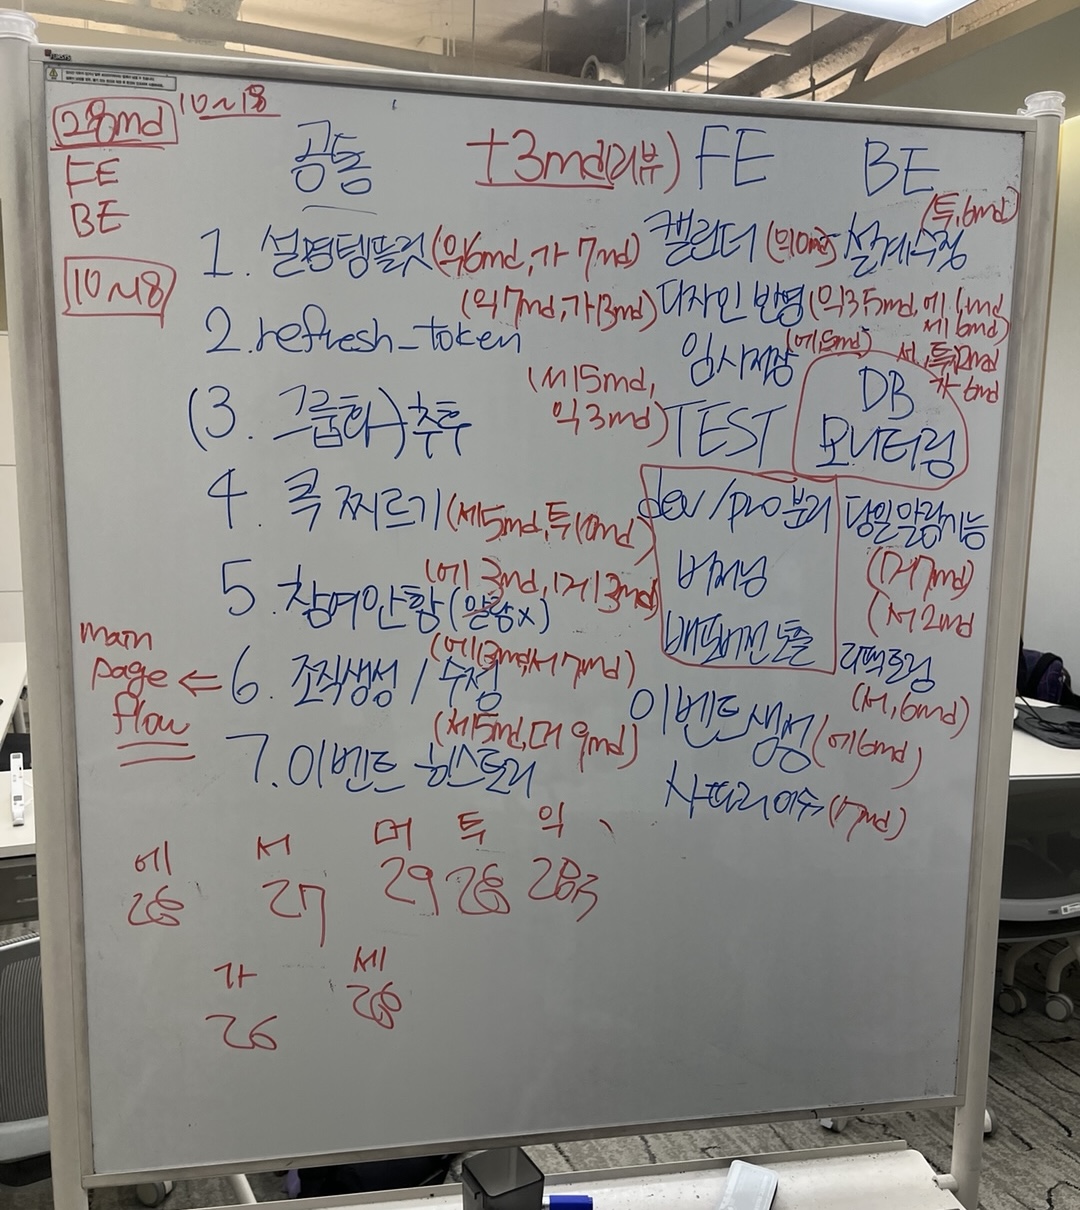 28md 10~18
FE
BE
10~18
공통 +3md(리뷰) FE BE
1. 설명템플릿(익6md, 가 7md)
2. refresh_token (익7md, 가13md)
(3. 그룹화→추후
4. 콕 찌르기(세5md, 투10md)
5. 참여안함(알람x) (에13md, 머13md)
main page flow ⇐ 6. 조직생성 / 수정 (에13md, 서7md)
7. 이벤트 히스토리 (세15md, 머9md)
캘린더
디자인 반영
임시저장 (에5md)
TEST (세15md, 익3md)
dev/pro분리
버저닝
배포버전 노출
이벤트생성(에6md)
(17md)
설계수정 (투,6md)
서,투12md
가 6md
DB
모니터링
당일알람기능
(머7md)
(서2md
리팩토링
(서,6md)
에 서 머 투 익
28 27 29 28
가 세
26 28